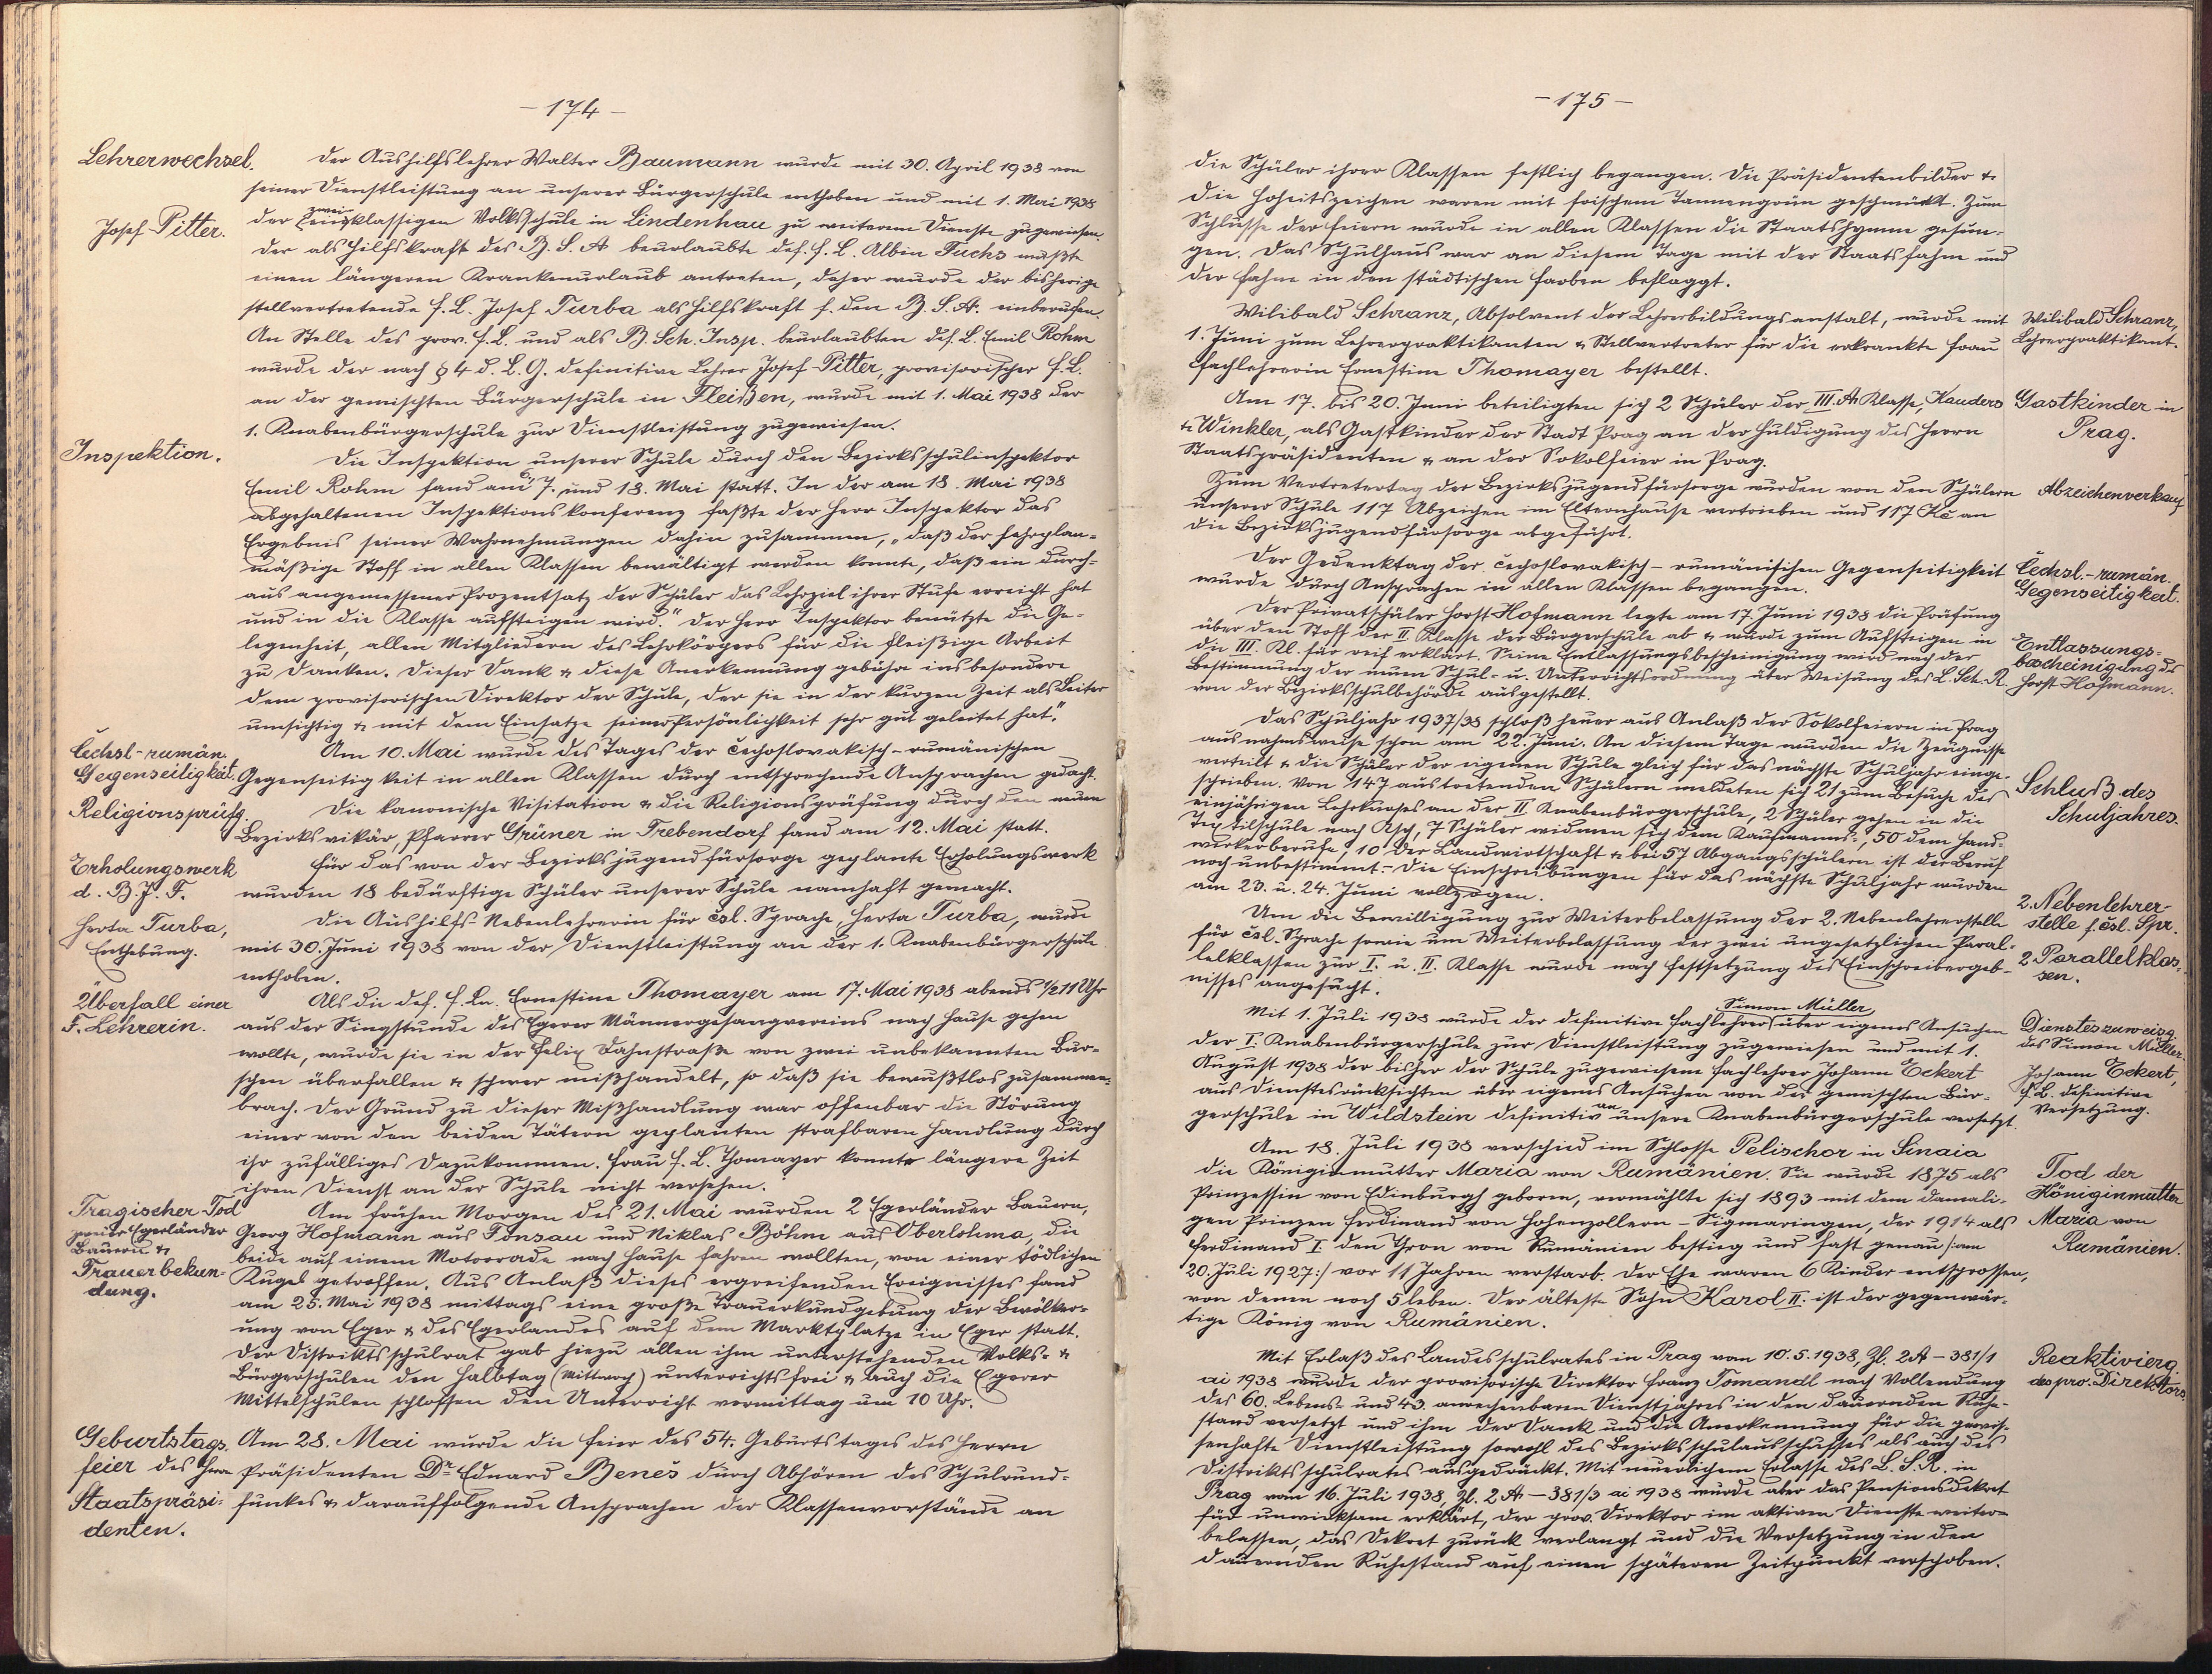 - 174 -
Lehrerwechsel.
Der Aushilfslehrer Walter Baumann wurde mit 30. April 1938 von
seiner Dienstleistung an unserer Bürgerschule enthoben und mit 1. Mai 1938
der zweiklassigen Volksschule in Lindenhau zu weiterem Dienste zugewiesen.
Josef Pitter.
Der als Hilfskraft des B. S. A. beurlaubte def. F. L. Albin Fuchs mußte
einen längeren Krankenurlaub antreten, daher wurde der bisherige
stellvertretende F. L. Josef Turba als Hilfskraft f. den B. S. A. einberufen.
An Stelle des prov. F. L. und als B. Sch. Insp. beurlaubten def. L. Emil Rohm
wurde der nach § 4 d. L. G. definitive Lehrer Josef Pitter, provisorischer F. L.
an der gemischten Bürgerschule in Fleißen, wurde mit 1. Mai 1938 der
1. Knabenbürgerschule zur Dienstleistung zugewiesen.
Inspektion.
Die Inspektion unserer Schule durch den Bezirksschulinspektor
Emil Rohm fand am 7. und 18. Mai statt. In der am 18. Mai 1938
abgehaltenen Inspektionskonferenz faßte der Herr Inspektor das
Ergebnis seiner Wahrnehmungen dahin zusammen, „daß der lehrplan-
mäßige Stoff in allen Klassen bewältigt werden konnte, daß ein durch-
aus angemessener Prozentsatz der Schüler das Lehrziel ihrer Stufe erreicht hat
und in die Klasse aufsteigen wird." Der Herr Inspektor benützte die Ge-
legenheit, allen Mitgliedern des Lehrkörpers für die fleißige Arbeit
zu danken. Dieser Dank & diese Anerkennung gebühre insbesondere
dem provisorischen Direktor der Schule, der sie in der kurzen Zeit als Leiter
umsichtig & mit dem Einsatze seiner Persönlichkeit sehr gut geleitet hat".
Čechsl.-rumän.
Gegenseitigkeit.
Am 10. Mai wurde des Tages der čechoslovakisch-rumänischen
Gegenseitigkeit in allen Klassen durch entsprechende Ansprachen gedacht.
Religionsprüfg.
Die kanonische Visitation & die Religionsprüfung durch den neuen
Bezirksvikär, Pfarrer Grüner in Trebendorf fand am 12. Mai statt.
Erholungswerk
d. B. J. F.
Für das von der Bezirksjugendfürsorge geplante Erholungswerk
wurden 18 bedürftige Schüler unserer Schule namhaft gemacht.
Herta Turba,
Enthebung.
Die Aushilfs-Nebenlehrerin für čsl. Sprache, Herta Turba, wurde
mit 30. Juni 1938 von der Dienstleistung an der 1. Knabenbürgerschule
enthoben.
Überfall einer
F. Lehrerin.
Als die def. F. Ln. Ernestine Thomayer am 17. Mai 1938 abends ½11 Uhr
aus der Singstunde des Egerer Männergesangvereins nach Hause gehen
wollte, wurde sie in der Felix Dahnstraße von zwei unbekannten Bur-
schen überfallen & schwer mißhandelt, so daß sie bewußtlos zusammen-
brach. Der Grund zu dieser Mißhandlung war offenbar die Störung
einer von den beiden Tätern geplanten strafbaren Handlung durch
ihr zufälliges Dazukommen. Frau F. L. Thomayer konnte längere Zeit
ihren Dienst an der Schule nicht versehen.
Tragischer Tod
zweier Egerländer
Bauern &
Trauerbekun-
dung.
Am frühen Morgen des 21. Mai wurden 2 Egerländer Bauern,
Georg Hofmann aus Fonsau und Niklas Böhm aus Oberlohma, die
beide auf einem Motorrade nach Hause fahren wollten, von einer tödlichen
Kugel getroffen. Aus Anlaß dieses ergreifenden Ereignisses fand
am 25. Mai 1938 mittags eine große Trauerkundgebung der Bevölker-
ung von Eger & des Egerlandes auf dem Marktplatze in Eger statt.
Der Distriktsschulrat gab hiezu allen ihm unterstehenden Volks- &
Bürgerschulen den Halbtag (Mittwoch) unterrichtsfrei & auch die Egerer
Mittelschulen schlossen den Unterricht vormittag um 10 Uhr.
Geburtstags-
feier des Herrn
Staatspräsi-
denten.
Am 28. Mai wurde die Feier des 54. Geburtstages des Herrn
Präsidenten Dr Eduard Beneš durch Abhören des Schulrund-
funkes & darauffolgende Ansprachen der Klassenvorstände an
- 175 -
die Schüler ihrer Klassen festlich begangen. Die Präsidentenbilder &
die Hoheitszeichen waren mit frischem Tannengrün geschmückt. Zum
Schlusse der Feiern wurde in allen Klassen die Staatshymne gesun-
gen. Das Schulhaus war an diesem Tage mit der Staatsfahne und
der Fahne in den städtischen Farben beflaggt.
Wilibald Schranz, Absolvent der Lehrerbildungsanstalt, wurde mit
1. Juni zum Lehrerpraktikanten & Stellvertreter für die erkrankte Frau
Fachlehrerin Ernestine Thomayer bestellt.
Wilibald Schranz,
Lehrerpraktikant.
Am 17. bis 20. Juni beteiligten sich 2 Schüler der III. A. Klasse, Kauders
& Winkler, als Gastkinder der Stadt Prag an der Huldigung des Herrn
Staatspräsidenten & an der Sokolfeier in Prag.
Gastkinder in
Prag.
Zum Vertretertag der Bezirksjugendfürsorge wurden von den Schülern
unserer Schule 117 Abzeichen im Elternhause vertrieben und 117 Kč an
die Bezirksjugendfürsorge abgeführt.
Abzeichenverkauf
Der Gedenktag der čechoslovakisch-rumänischen Gegenseitigkeit
wurde durch Ansprachen in allen Klassen begangen.
Čechsl.-rumän.
Gegenseitigkeit.
Der Privatschüler Horst Hofmann legte am 17. Juni 1938 die Prüfung
über den Stoff der II. Klasse der Bürgerschule ab & wurde zum Aufsteigen in
die III. Kl. für reif erklärt. Seine Entlassungsbescheinigung wird nach der
Bestimmung der neuen Schul- u. Unterrichtsordnung über Weisung des L. Sch. R.
von der Bezirksschulbehörde ausgestellt.
Entlassungs-
bescheinigung des
Horst Hofmann.
Das Schuljahr 1937/38 schloß heuer aus Anlaß der Sokolfeiern in Prag
ausnahmsweise schon am 22. Juni. An diesem Tage wurden die Zeugnisse
verteilt & die Schüler der eigenen Schule gleich für das nächste Schuljahr einge-
schrieben. Von 147 austretenden Schülern meldeten sich 21 zum Besuche des
einjährigen Lehrkurses an der II. Knabenbürgerschule, 2 Schüler gehen in die
Textilschule nach Asch, 7 Schüler widmen sich dem Kaufmanns-, 50 dem Hand-
werkerberufe, 10 der Landwirtschaft & bei 57 Abgangsschülern ist der Beruf
noch unbestimmt. - Die Einschreibungen für das nächste Schuljahr wurden
am 23. u. 24. Juni vollzogen.
Schluß des
Schuljahres.
Um die Bewilligung zur Weiterbelassung der 2. Nebenlehrerstelle
für čsl. Sprache sowie um Weiterbelassung der zwei ungesetzlichen Paral-
lelklassen zur I. u. II. Klasse wurde nach Festsetzung des Einschreibergeb-
nisses angesucht.
2. Nebenlehrer-
stelle f. čsl. Spr.
2 Parallelklas-
sen.
Mit 1. Juli 1938 wurde der definitive Fachlehrer Simon Müller über eigenes Ansuchen
der I. Knabenbürgerschule zur Dienstleistung zugewiesen und mit 1.
August 1938 der bisher der Schule zugewiesene Fachlehrer Johann Eckert
aus Dienstesrücksichten über eigenes Ansuchen von der gemischten Bür-
gerschule in Wildstein definitiv an unsere Knabenbürgerschule versetzt.
Dienstes zuweisg.
des Simon Müller.
Johann Eckert,
F. L. definitive
Versetzung.
Am 18. Juli 1938 verschied im Schlosse Pelischor in Sinaia
die Königinmutter Maria von Rumänien. Sie wurde 1875 als
Prinzessin von Edinburgh geboren, vermählte sich 1893 mit dem damali-
gen Prinzen Ferdinand von Hohenzollern-Sigmaringen, der 1914 als
Ferdinand I. den Thron von Rumänien bestieg und fast genau /: am
20. Juli 1927 :/ vor 11 Jahren verstarb. Der Ehe waren 6 Kinder entsprossen,
von denen noch 5 leben. Der älteste Sohn Karol II. ist der gegenwär-
tige König von Rumänien.
Tod der
Königinmutter
Maria von
Rumänien.
Mit Erlaß des Landesschulrates in Prag vom 10. 5. 1938, Zl. 2A - 381/1
ai 1938 wurde der provisorische Direktor Franz Tomandl nach Vollendung
des 60. Lebens- und 43. anrechenbaren Dienstjahres in den dauernden Ruhe-
stand versetzt und ihm der Dank und die Anerkennung für die gewis-
senhafte Dienstleistung sowohl des Bezirksschulausschusses als auch des
Distriktsschulrates ausgedrückt. Mit neuerlichem Erlasse des L. S. R. in
Prag vom 16. Juli 1938, Zl. 2A - 381/3 ai 1938 wurde aber das Pensionsdekret
für unwirksam erklärt, der prov. Direktor im aktiven Dienste weiter-
belassen, das Dekret zurück verlangt und die Versetzung in den
dauernden Ruhestand auf einen späteren Zeitpunkt verschoben.
Reaktivierg.
des prov. Direktors.